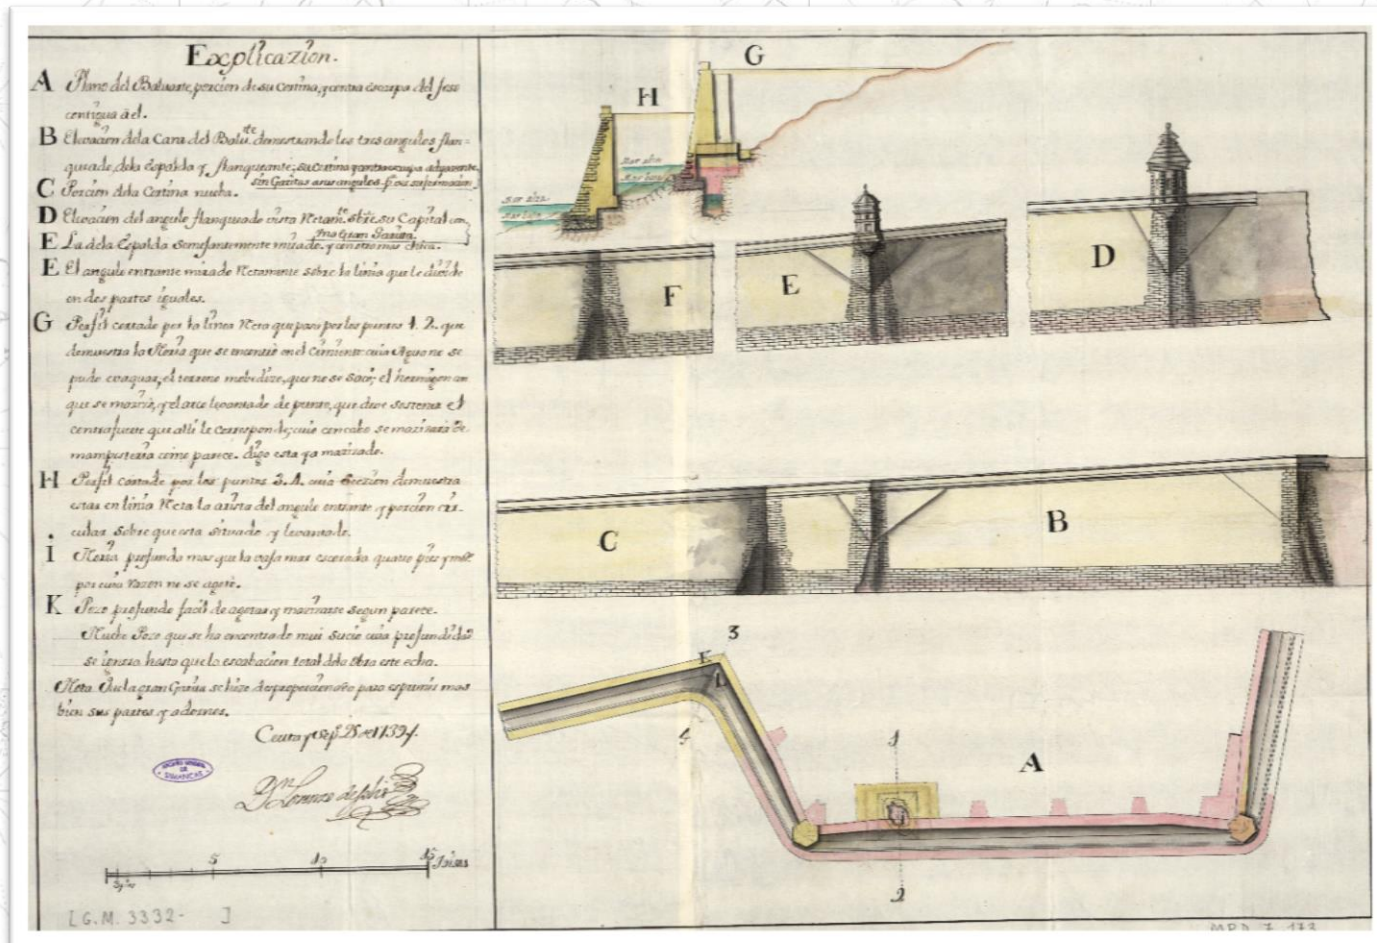 Explicazion.
A Plano del Baluarte, porcion de su Cortina, y contra escarpa del foso
contigua à el.
B Elevacion dela Cara del Balu.te demostrando los tres angulos flan-
queado, dela Espalda y flanqueante; su Cortina y contraescarpa adyacente,
sin Garitas
C Porcion dela Cortina nueba.
D Elevacion del angulo flanqueado vista Rectam.te sbre su Capital con
una gran Garita.
E La dela Espalda semejantemente mirado, y con otra mas chica.
E El angulo entrante mirado Rectamente sobre la linia que le divide
en dos partes iguales.
G Perfil cortado por la linea Recta que pasa por los puntos 1. 2. que
demuestra la Noria que se encontró en el Cimiento cuia Agua no se
pudo evaquar, el terreno mobedizo, que no se sacó; el hormigon con
que se mazizó, y el arco levantado de punto, que deve sostener el
contrafuerte que alli le corresponde; cuio concabo se mazisará de
mamposteria como parece. digo esta ya mazizado.
H Perfil cortado por los puntos 3. 4. cuia Seccion demuestra
estar en linia Recta la arista del angulo entrante y porcion cir-
cular sobre que esta situado y levantado.
i Noria profunda mas que la mas escavada quatro pies y
por cuia razon no se agotó.
K Pozo profundo facil de agotar y mazizarse segun parece.
Pozo que se ha encontrado mui sucio cuia profundidad
se ignora hasta que la escabacion total dela Obra este echa.
Nota. Que la gran Garita se hizo desproporcionada para esprimir mas
bien sus partes y adornos.
Ceuta y Sep.e 25 de 1739.
D.n Lorenzo de Solis
ARCHIVO GENERAL
DE
SIMANCAS
5 10 15 Toisas
[G.M. 3332- ]
G
H
Mar alta
Mar baxa
Mar alta
Mar baxa
F
E
D
C
B
3
E
4
1
A
2
MPD 7, 173